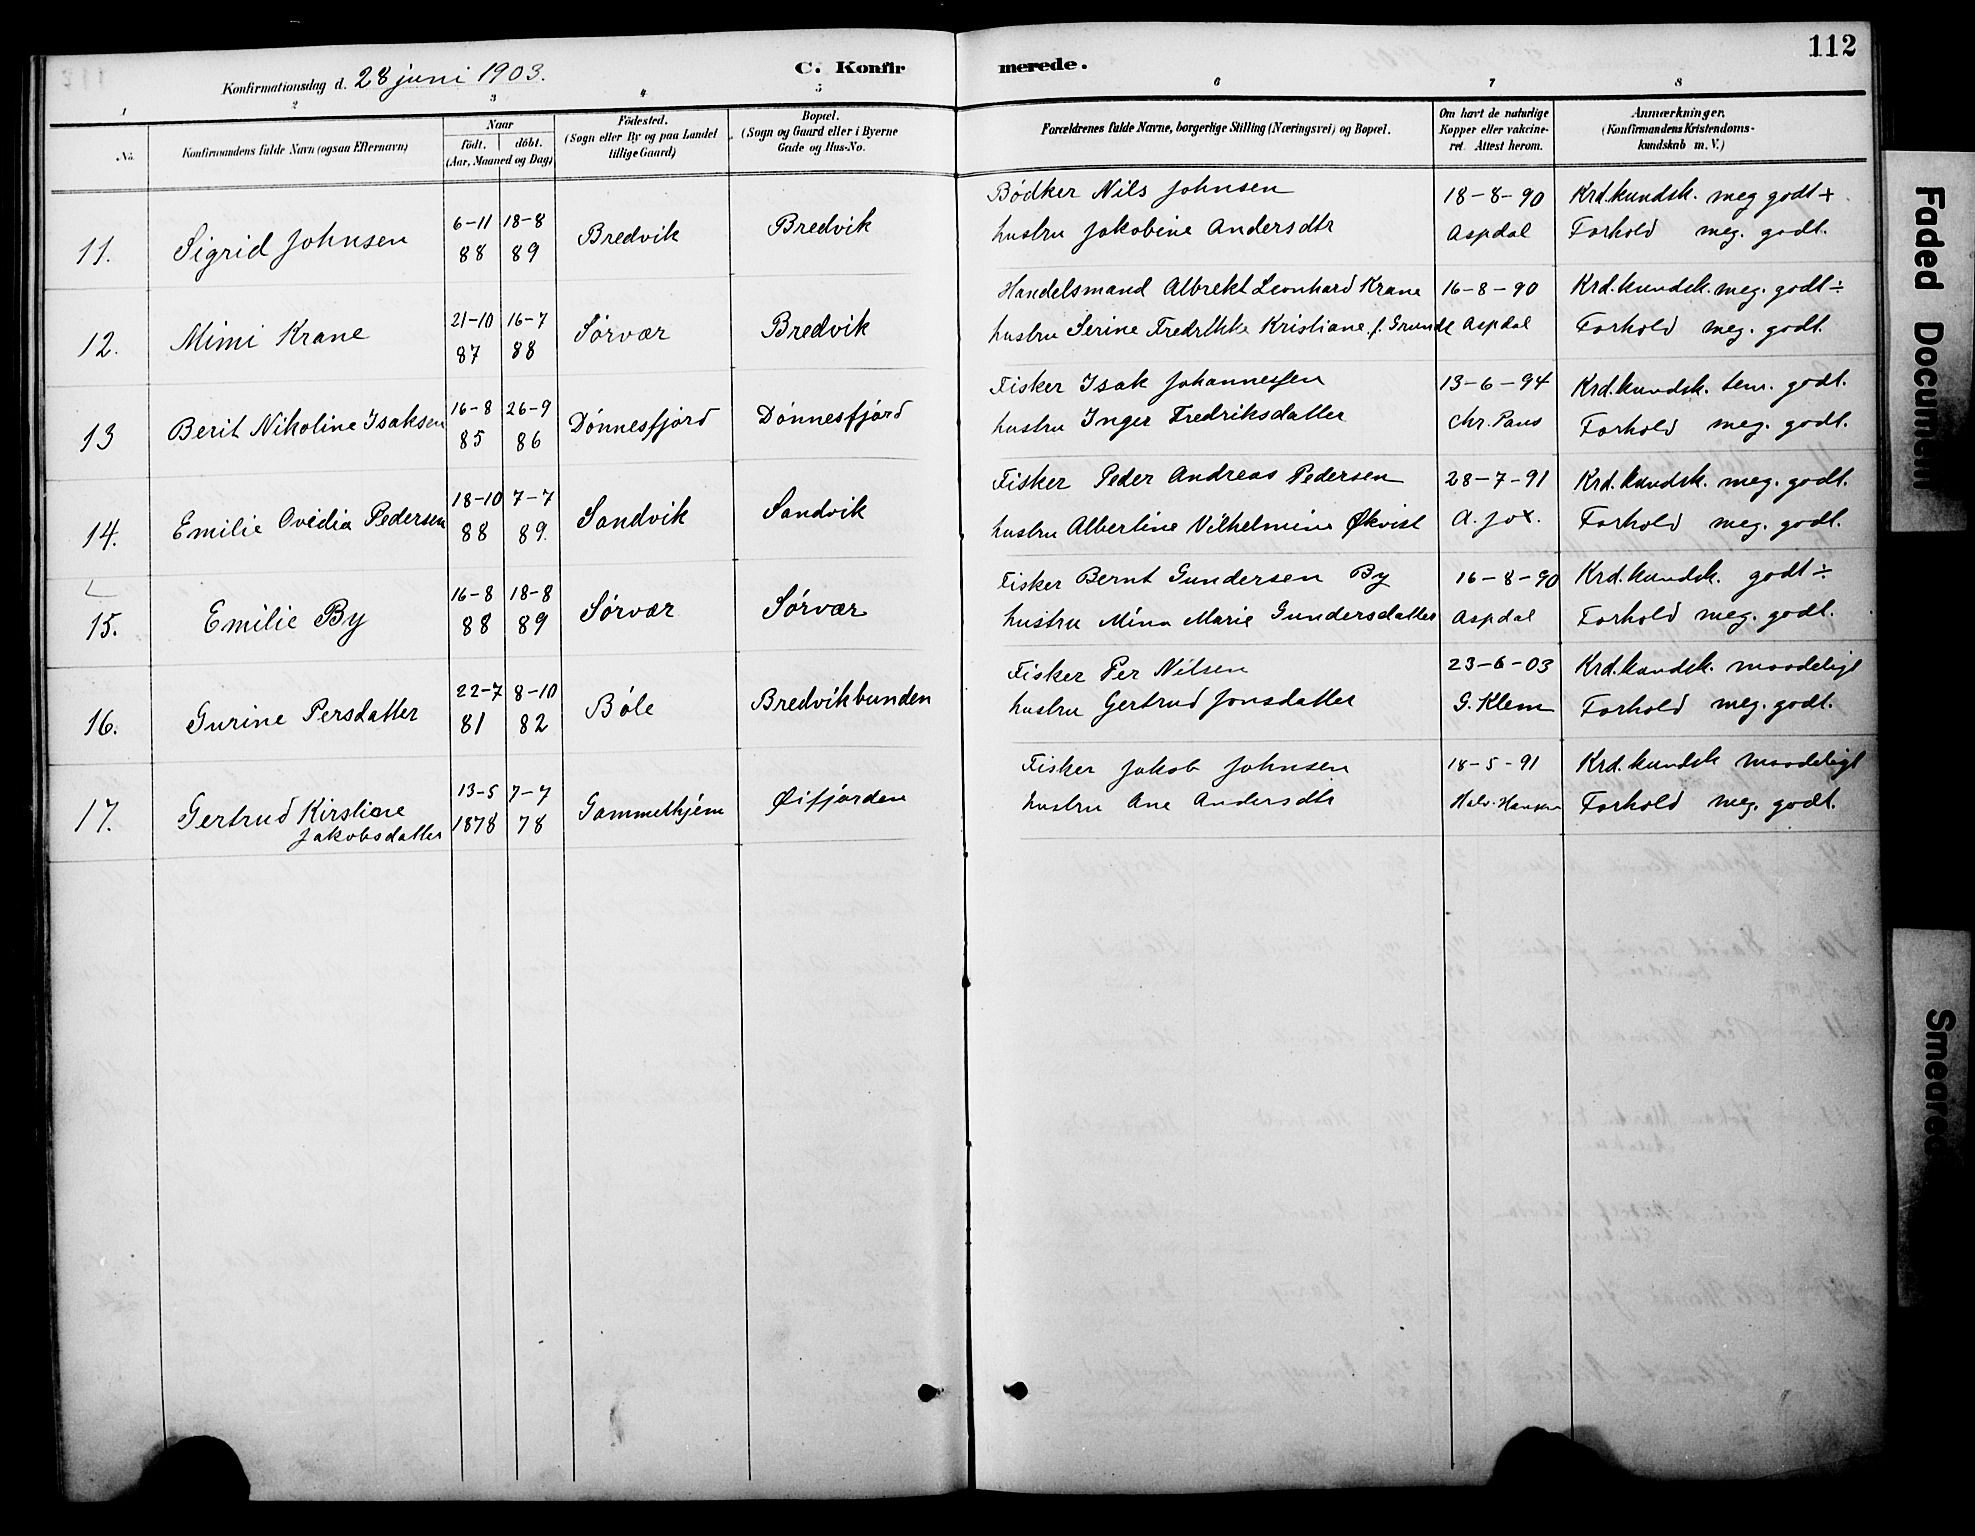 112
Konfirmationsdag d. 28 juni 1903.
C. Konfirmerede.
1 2 3 4 5 6 7 8
No.
Konfirmandens fulde Navn (ogsaa Efternavn)
Naar
født. døbt.
(Aar, Maaned og Dag)
Fødested.
(Sogn eller By og paa Landet
tillige Gaard)
Bopæl.
(Sogn og Gaard eller i Byerne
Gade og Hus-No.
Forældrenes fulde Navne, borgerlige Stilling (Næringsvei) og Bopæl.
Om havt de naturlige
Kopper eller vakcine-
ret. Attest herom.
Anmærkninger.
(Konfirmandens Kristendoms-
kundskab m. V.)
11. Sigrid Johnsen 6-11 88 18-8 89 Bredvik Bredvik
Bødker Nils Johnsen 18-8-90 Krd.kundsk. meg godt +
hustru Jakobine Andersdtr Aspdal Forhold meg. godt.
12. Mimi Krane 21-10 87 16-7 88 Sørvær Bredvik
Handelsmand Albrekt Leonhard Krane 16-8-90 Krd.kundsk. meg. godt ÷
hustru Serine Fredrikke Kristiane f. Grundt Aspdal Forhold meg. godt.
13 Berit Nikoline Isaksen 16-8 85 26-9 86 Dønnesfjord Dønnesfjord
Fisker Isak Johannessen 13-6-94 Krd.kundsk. tem. godt.
hustru Inger Fredriksdatter Chr. Paus Forhold meg. godt.
14. Emilie Ovedia Pedersen 18-10 88 7-7 89. Sandvik Sandvik
Fisker Peder Andreas Pedersen 28-7-91 Krd.kundsk. meg. godt.
hustru Albertine Vilhelmine Økvist A. Fox. Forhold meg. godt.
15. Emilie By 16-8 88 18-8 89 Sørvær Sørvær
Fisker Bernt Gundersen By 16-8-90 Krd.kundsk. godt ÷
hustru Mina Marie Gundersdatter Aspdal Forhold meg. godt.
16. Gurine Persdatter 22-7 81 8-10 82 Bøle Bredvikbunden
Fisker Per Nilsen 23-6-03 Krd.kundsk. maadeligt
hustru Gertrud Jonsdatter G. Klem Forhold meg. godt.
17. Gertrud Kirstiane Jakobsdatter 13-5 1878 7-7 78 Gammelhjem Øifjorden
Fisker Jakob Johnsen 18-5-91 Krd.kundsk maadeligt
hustru Ane Andersdtr Halv. Hansen Forhold meg. godt.
Faded Document
Smeared